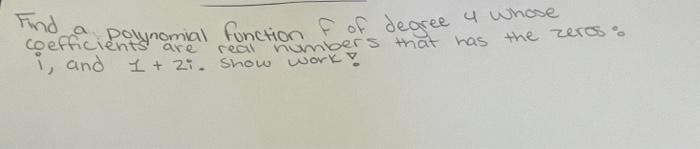 Find a polynomial function f of degree 4 whose
coefficients are real numbers that has the zeros:
i, and 1 + 2i. Show work!